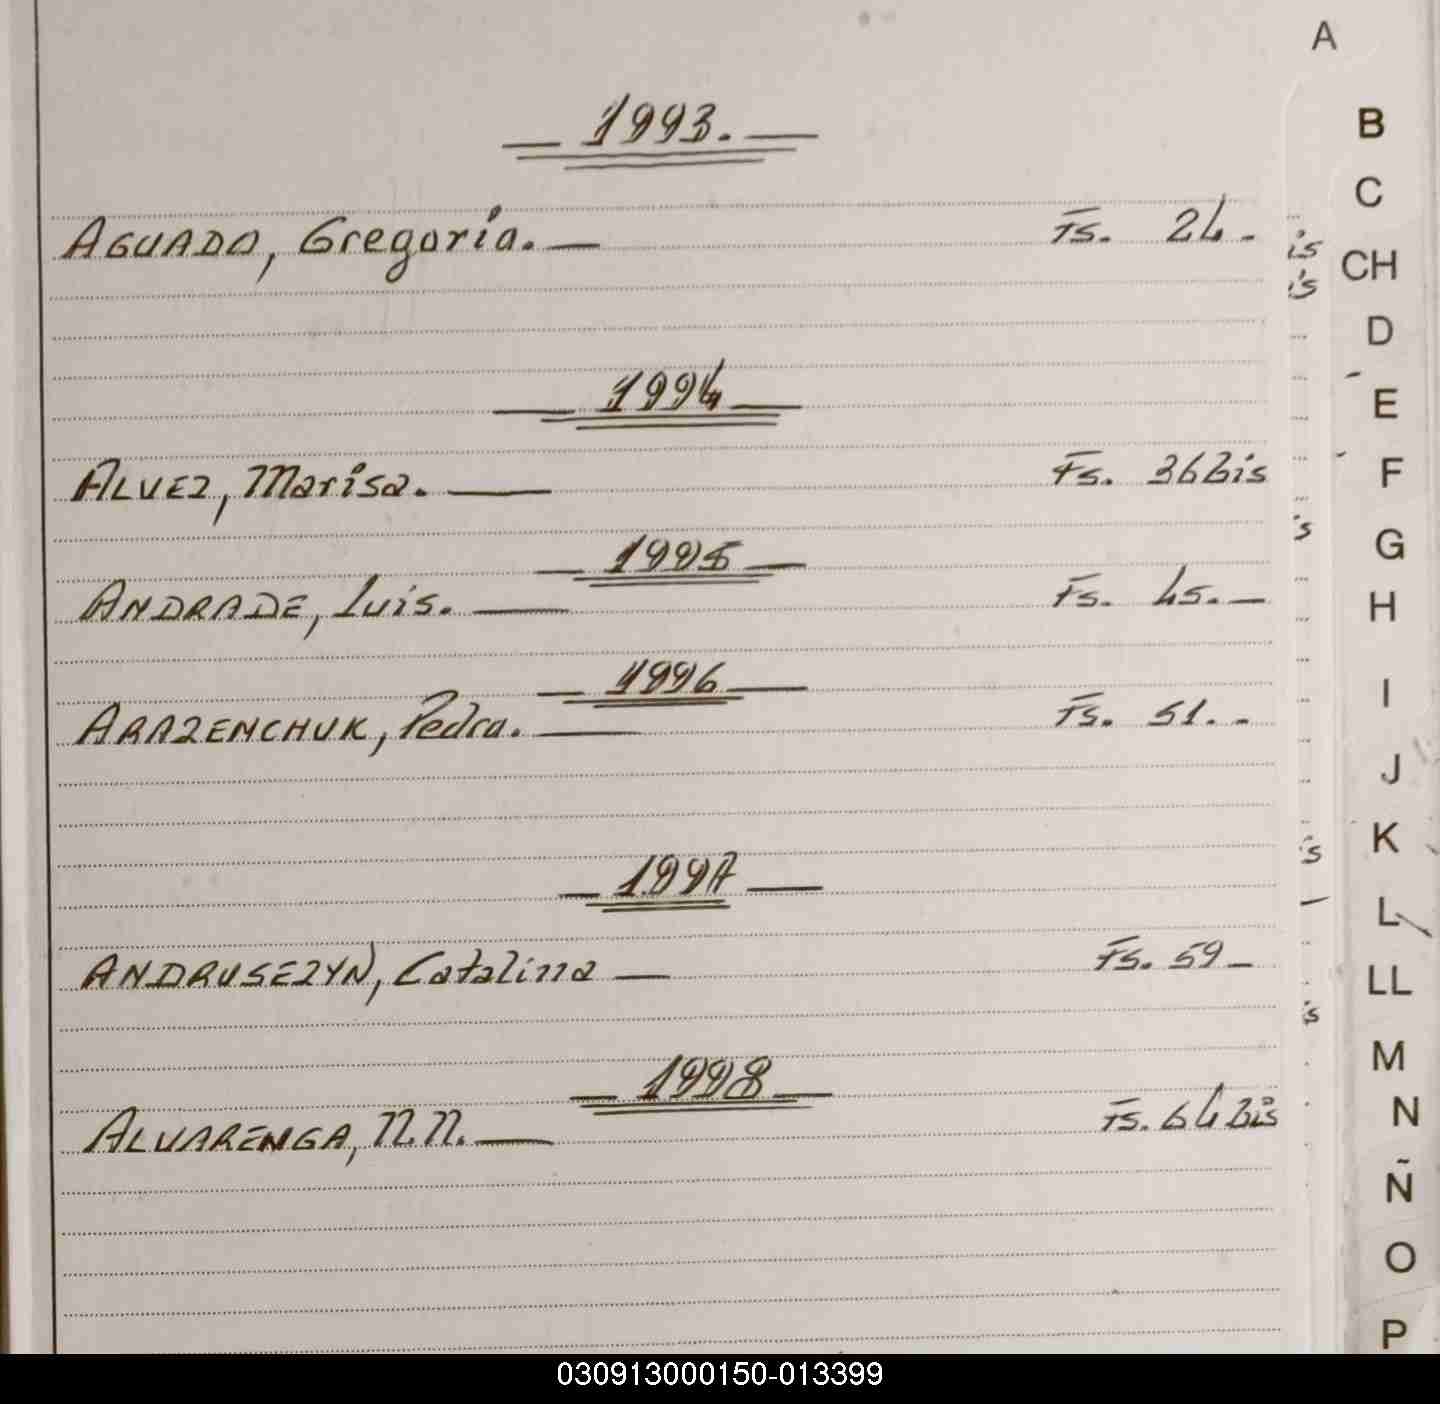 A
1993.
AGUADO, Gregoria. Fs. 24.
1994
ALVEZ, Marisa. Fs. 36 Bis
1995
ANDRADE, Luis. Fs. 45.
1996
ARAZENCHUK, Pedro. Fs. 51.
1997
ANDRUSEZYN, Catalina Fs. 59
1998
ALVARENGA, N.N. Fs. 64 Bis
B
C
CH
D
E
F
G
H
I
J
K
L
LL
M
N
Ñ
O
P
030913000150-013399